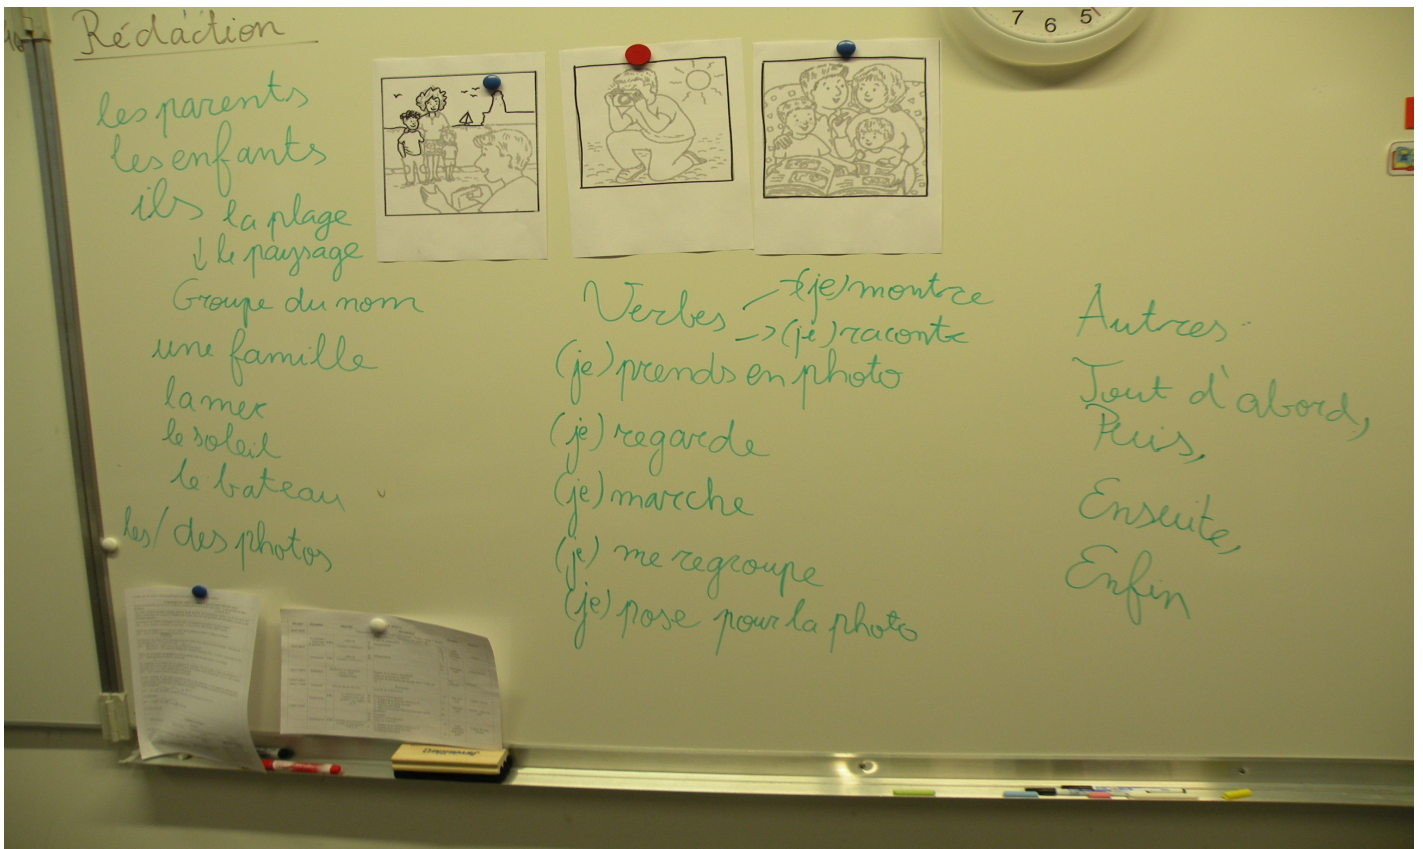 Rédaction
7 6 5
les parents
les enfants
ils la plage
↓ le paysage
Groupe du nom
une famille
la mer
le soleil
le bateau
les/des photos
Verbes → (je) montre
→ (je) raconte
(je) prends en photo
(je) regarde
(je) marche
(je) me regroupe
(je) pose pour la photo
Autres
Tout d'abord,
Puis,
Ensuite,
Enfin